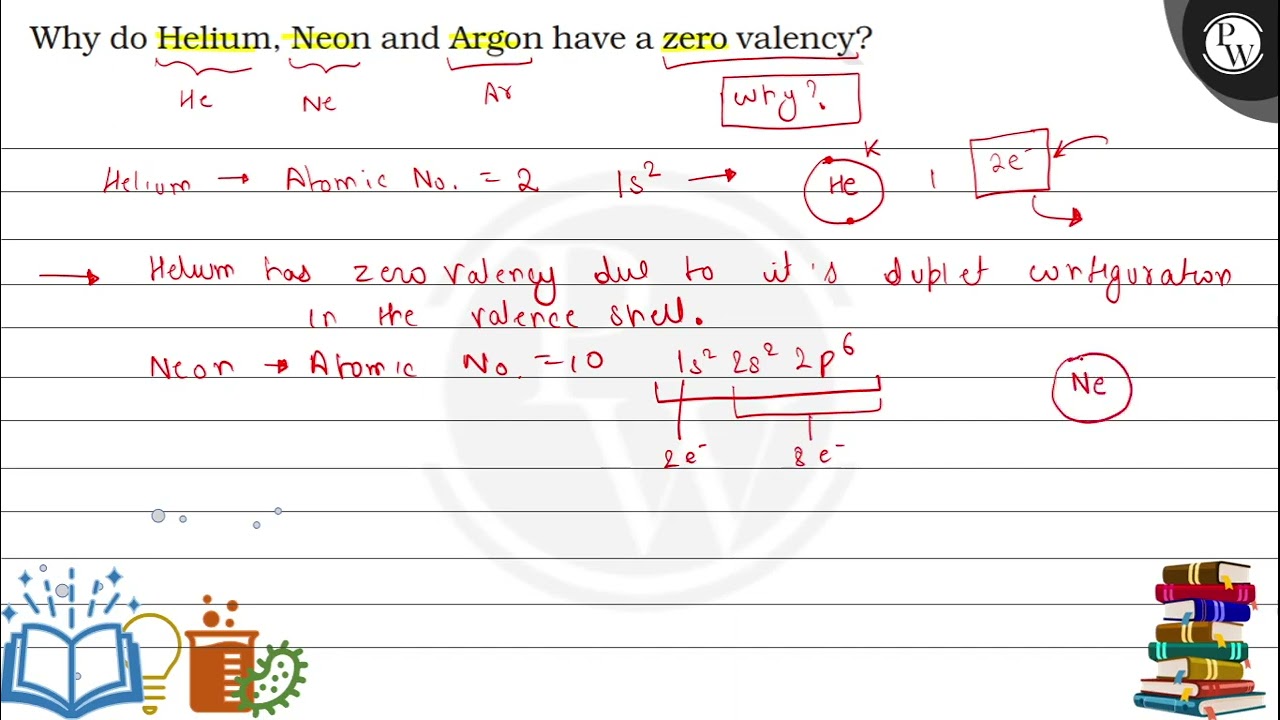 Why do Helium, Neon and Argon have a zero valency?
PW
He Ne Ar why?
Helium → Atomic No. = 2 1s² → He K 2e⁻
→ Helium has zero valency due to it's duplet configuration
in the valence shell.
Neon → Atomic No. = 10 1s² 2s² 2p⁶ Ne
2e⁻ 8e⁻
PW